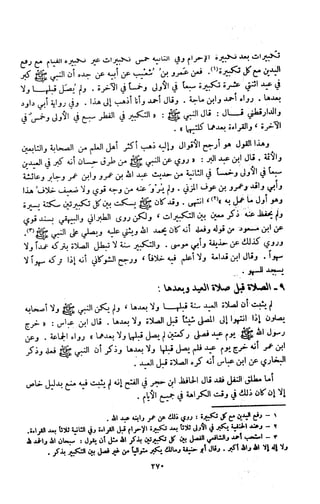 تكبيرات بعد تكبيرة الإحرام وفي الثانية خمس تكبيرات غير تكبيرة القيام مع رفع
اليدين مع كل تكبيرة(١). فعن عمرو بن شعيب عن أبيه عن جده أن النبي ﷺ كبر
في عيد اثنتي عشرة تكبيرة سبعاً في الأولى وخمساً في الآخرة. ولم يصل قبلها ولا
بعدها. رواه أحمد وابن ماجة. وقال أحمد وأنا أذهب إلى هذا. وفي رواية أبي داود
والدارقطني قال: قال النبي ﷺ: «التكبير في الفطر سبع في الأولى وخمس في
الآخرة، والقراءة بعدهما كلتيهما».
وهذا القول هو أرجح الأقوال وإليه ذهب أكثر أهل العلم من الصحابة والتابعين
والأئمة. قال ابن عبد البر: «روي عن النبي ﷺ من طرق حسان أنه كبر في العيدين
سبعاً في الأولى وخمساً في الثانية من حديث عبد الله بن عمرو وابن عمر وجابر وعائشة
وأبي واقد وعمرو بن عوف المزني. ولم يرو عنه من وجه قوي ولا ضعيف خلاف هذا
وهو أول ما عمل به»(٢) وقد كان ﷺ يسكت بين كل تكبيرتين سكتة يسيرة
ولم يحفظ عنه ذكر معين بين التكبيرات، ولكن روى الطبراني والبيهقي بسند قوي
عن ابن مسعود من قوله وفعله أنه كان يحمد الله ويثني عليه ويصلي على النبي ﷺ(٣).
وروي كذلك عن حذيفة وأبي موسى. والتكبير سنة لا تبطل الصلاة بتركه عمداً ولا
سهواً. وقال ابن قدامة ولا أعلم فيه خلافاً، ورجح الشوكاني أنه إذا تركه سهواً لا
يسجد للسهو.
٩ - الصلاة قبل صلاة العيد وبعدها:
لم يثبت أن لصلاة العيد سنة قبلها ولا بعدها، ولم يكن النبي ﷺ ولا أصحابه
يصلون إذا انتهوا إلى المصلى شيئاً قبل الصلاة ولا بعدها. قال ابن عباس: «خرج
رسول الله ﷺ يوم عيد فصلى ركعتين لم يصل قبلها ولا بعدهما» رواه الجماعة. وعن
ابن عمر أنه خرج يوم عيد فلم يصل قبلها ولا بعدها وذكر أن النبي ﷺ فعله وذكر
البخاري عن ابن عباس أنه كره الصلاة قبل العيد.
أما مطلق النفل فقد قال الحافظ ابن حجر في الفتح إنه لم يثبت فيه منع بدليل خاص
إلا إن كان ذلك في وقت الكراهة في جميع الأيام.
١ - رفع اليدين مع كل تكبيرة: روي ذلك عن عمر وابنه عبد الله.
٢ - وعند الحنفية يكبر في الأولى ثلاثاً بعد تكبيرة الإحرام قبل القراءة وفي الثانية ثلاثاً بعد القراءة.
٣ - استحب أحمد والشافعي الفصل بين كل تكبيرتين بذكر الله مثل أن يقول: سبحان الله والحمد لله
ولا إله إلا الله والله أكبر. وقال أبو حنيفة ومالك يكبر متوالياً من غير فصل بين التكبير بذكر.
٢٧٠